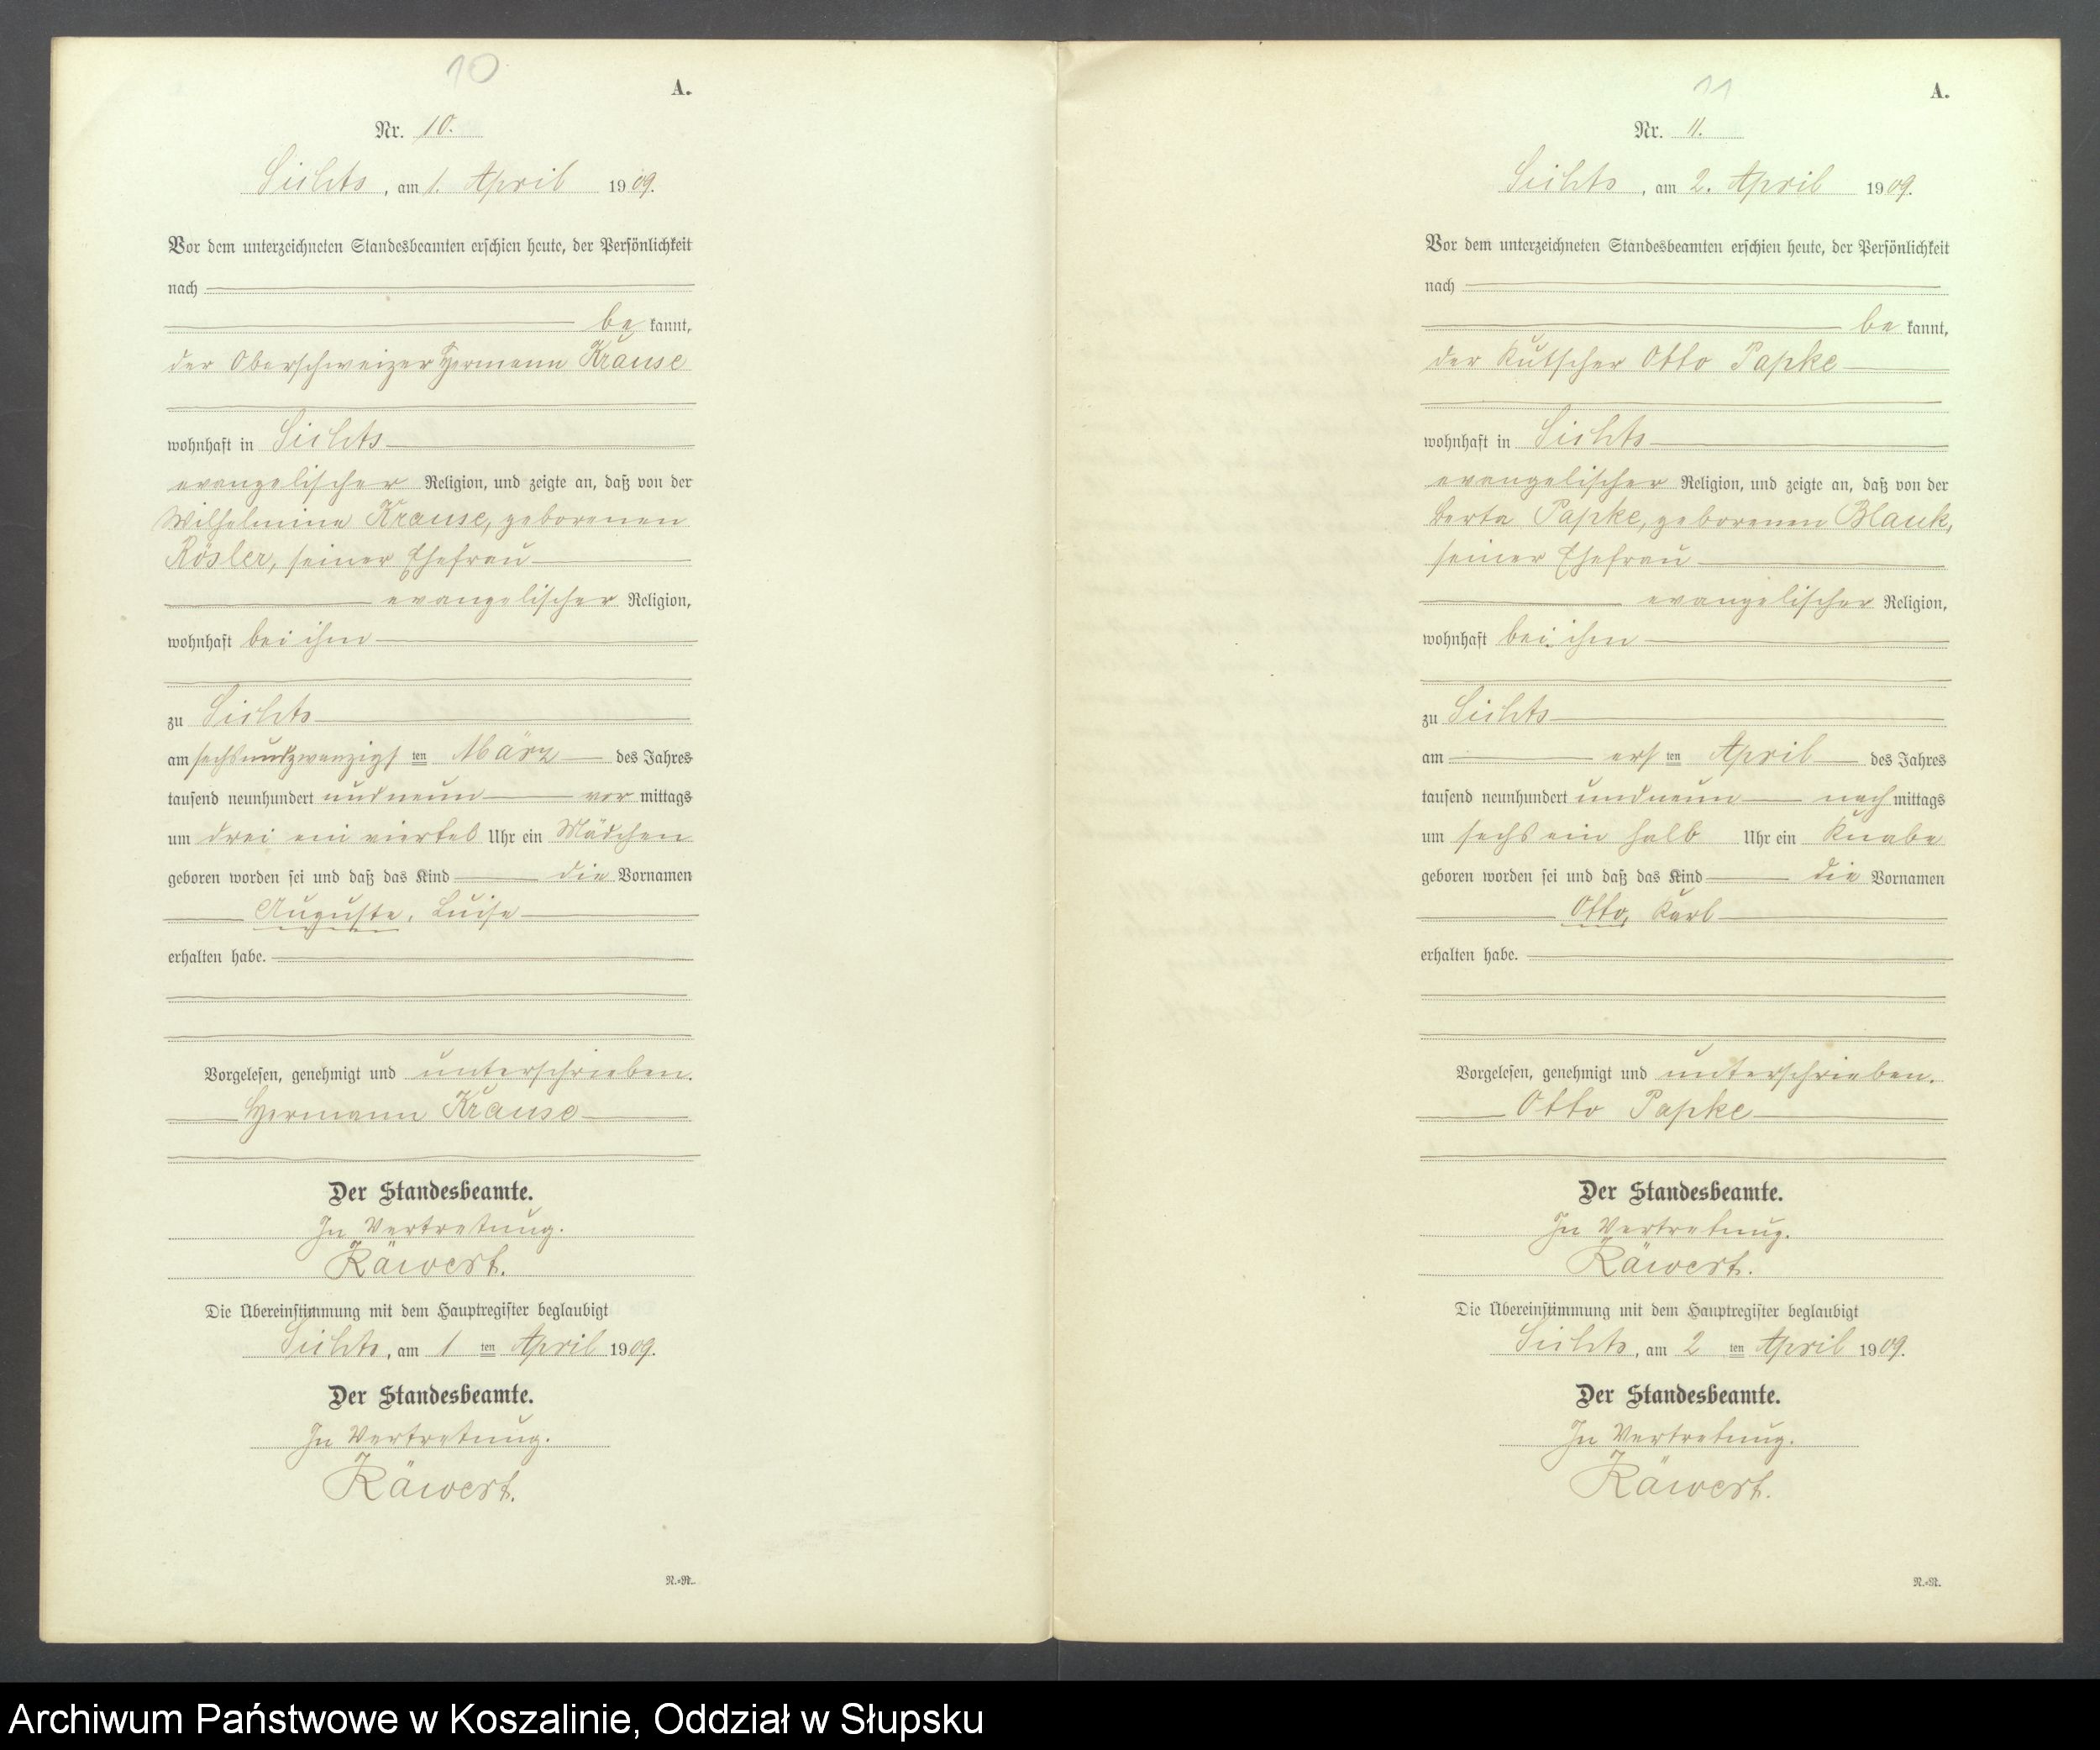 10
A.
Nr. 10.
Sichts, am 1. April 1909.
Vor dem unterzeichneten Standesbeamten erschien heute, der Persönlichkeit
nach
be kannt,
der Oberschweizer Hermann Krause
wohnhaft in Sichts
evangelischer Religion, und zeigte an, daß von der
Wilhelmine Krause, geborenen
Rösler, seiner Ehefrau
evangelischer Religion,
wohnhaft bei ihm
zu Sichts
am sechsundzwanzigsten März des Jahres
tausend neunhundert und neun vor mittags
um drei ein viertel Uhr ein Mädchen
geboren worden sei und daß das Kind die Vornamen
Auguste, Luise
erhalten habe.
Vorgelesen, genehmigt und unterschrieben.
Hermann Krause
Der Standesbeamte.
In Vertretung.
Räwert.
Die Übereinstimmung mit dem Hauptregister beglaubigt
Sichts, am 1 ten April 1909.
Der Standesbeamte.
In Vertretung.
Räwert.
N.-N.
11
A.
Nr. 11.
Sichts, am 2. April 1909.
Vor dem unterzeichneten Standesbeamten erschien heute, der Persönlichkeit
nach
be kannt,
der Kutscher Otto Papke
wohnhaft in Sichts
evangelischer Religion, und zeigte an, daß von der
Berta Papke, geborenen Blauk,
seiner Ehefrau
evangelischer Religion,
wohnhaft bei ihm
zu Sichts
am ersten April des Jahres
tausend neunhundert und neun nach mittags
um sechs ein halb Uhr ein Knabe
geboren worden sei und daß das Kind die Vornamen
Otto, Karl
erhalten habe.
Vorgelesen, genehmigt und unterschrieben.
Otto Papke
Der Standesbeamte.
In Vertretung.
Räwert.
Die Übereinstimmung mit dem Hauptregister beglaubigt
Sichts, am 2 ten April 1909.
Der Standesbeamte.
In Vertretung.
Räwert.
N.-N.
Archiwum Państwowe w Koszalinie, Oddział w Słupsku